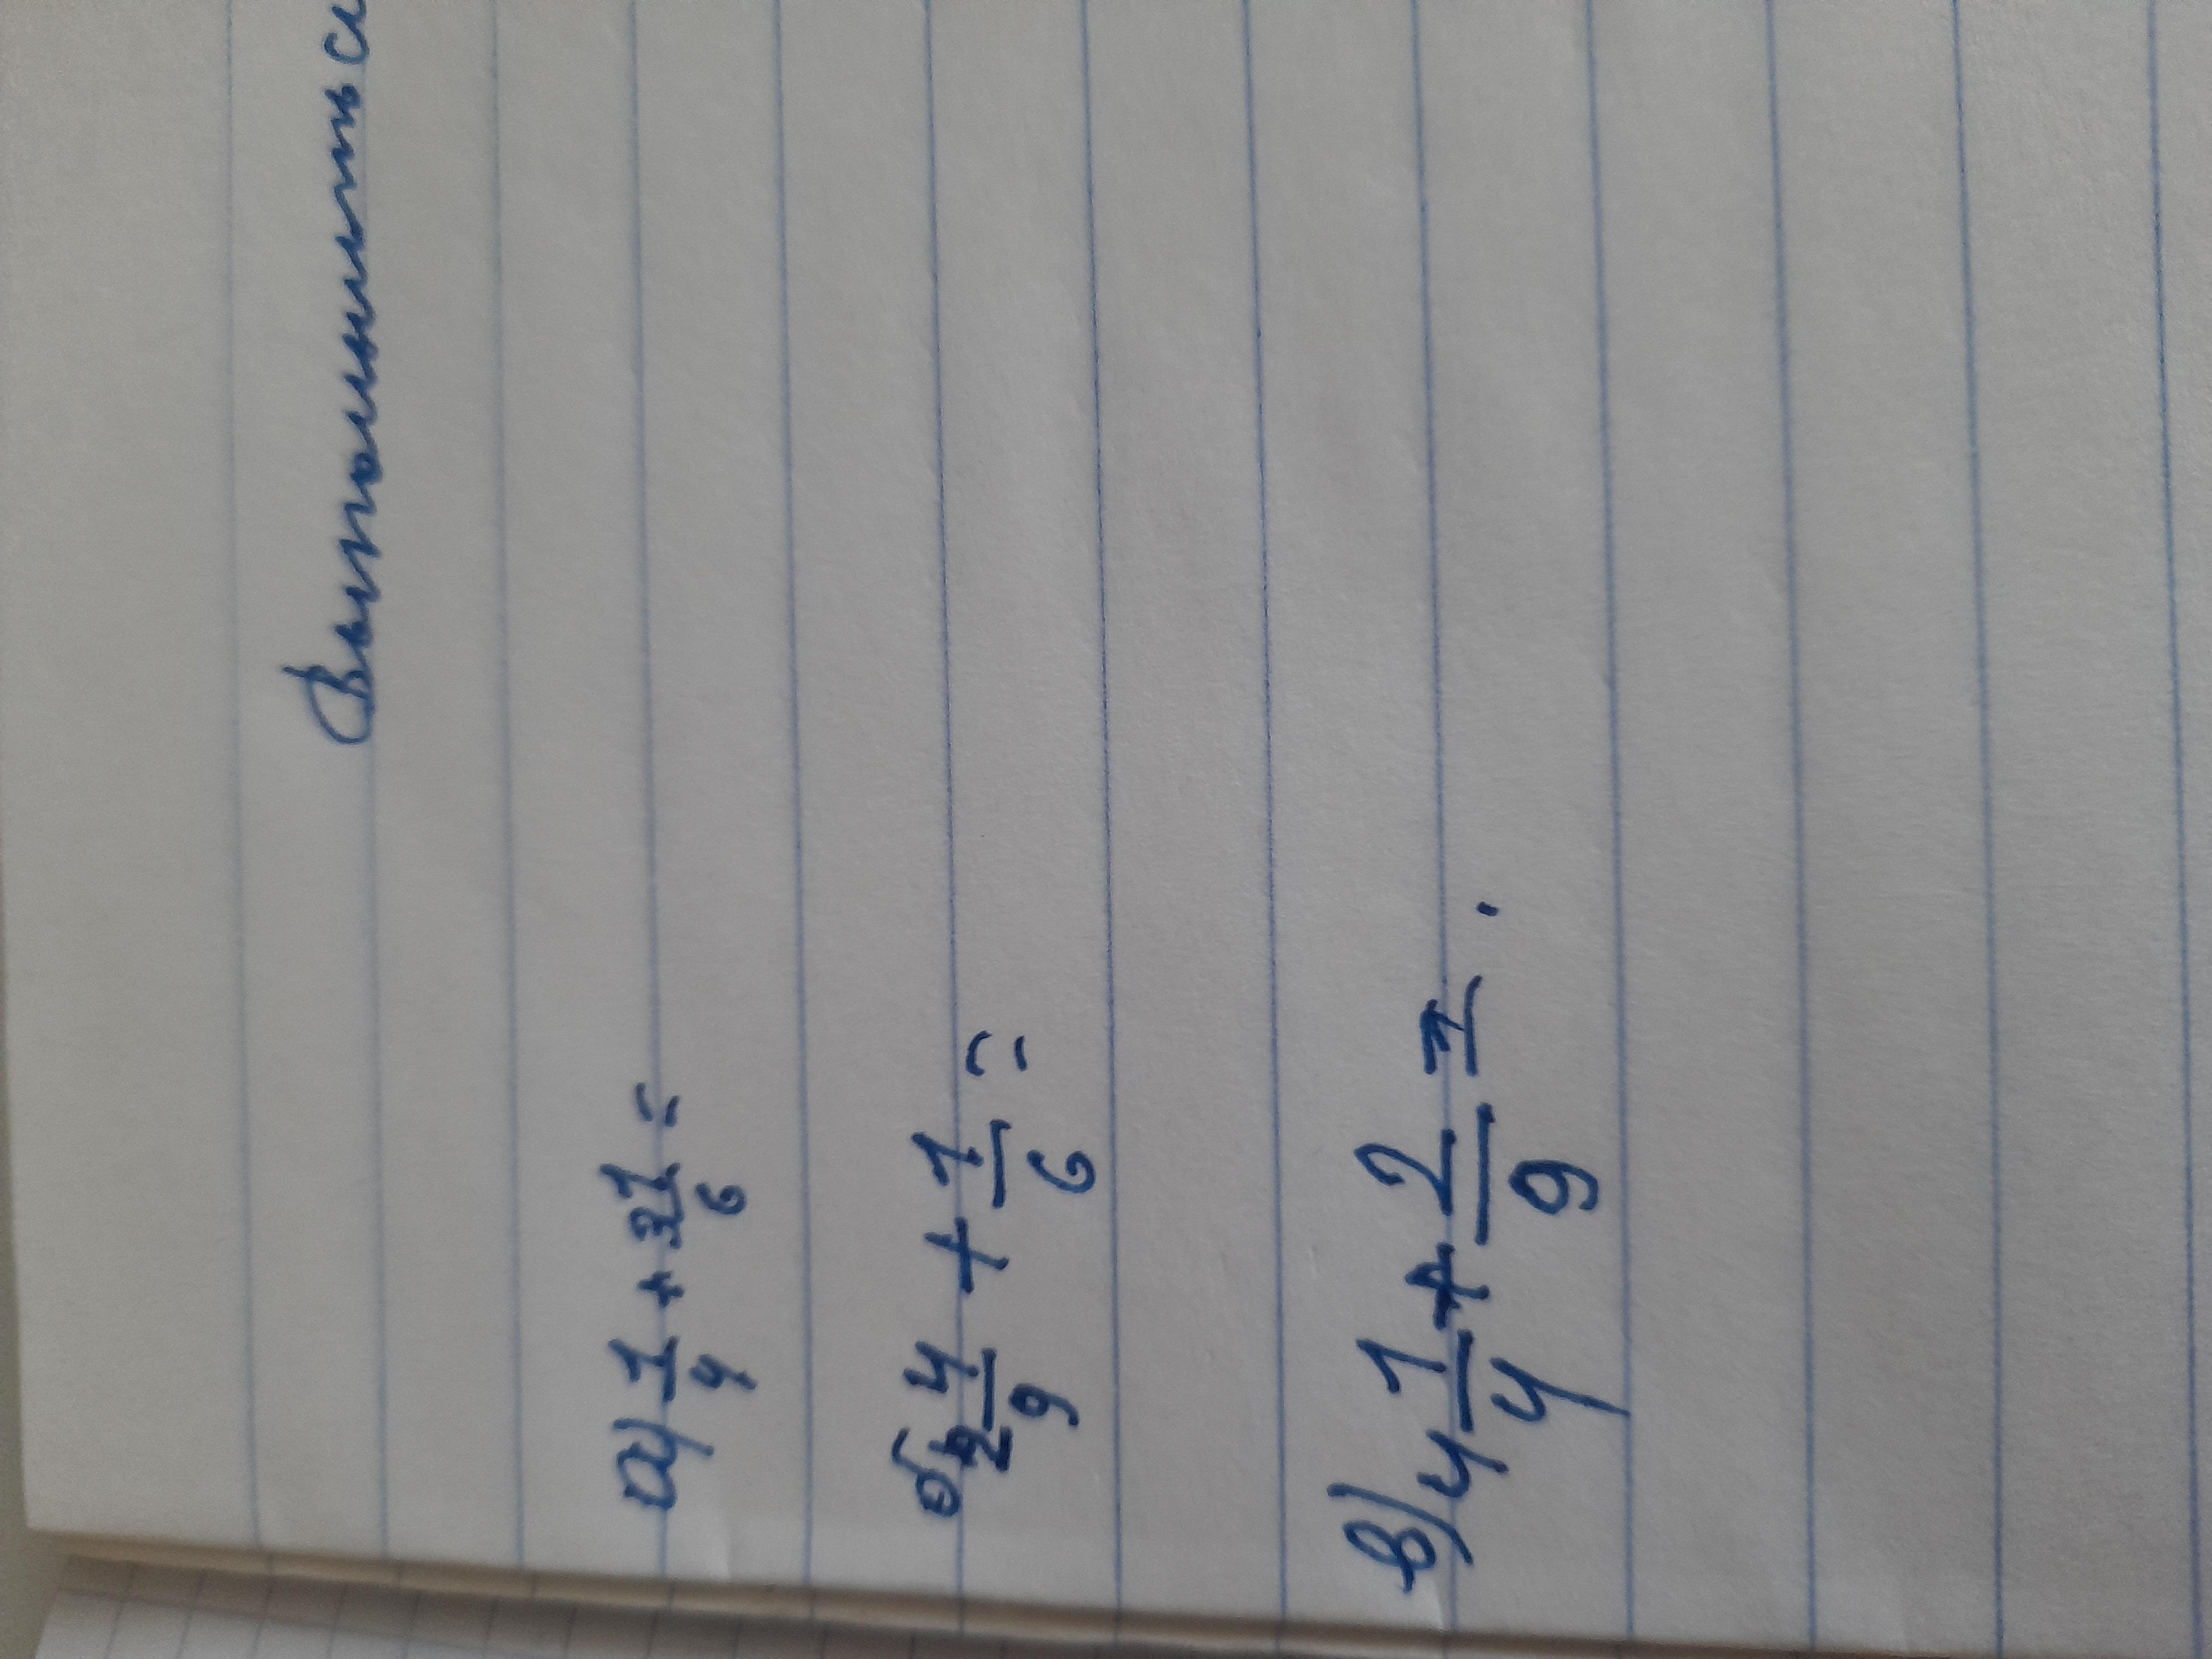 Выполнить с
а) 1/4 + 3 1/6 =
б) 2 4/9 + 1/6 =
в) 4 1/4 + 2/9 = .